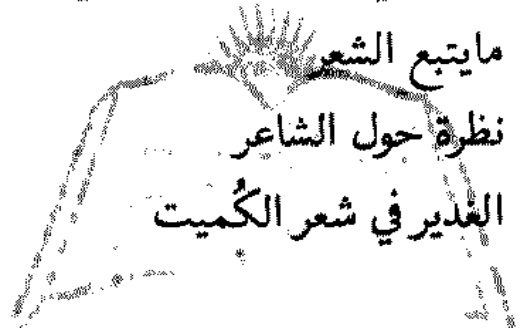 مايتبع الشعر
نظرة حول الشاعر
الغدير في شعر الكُميت